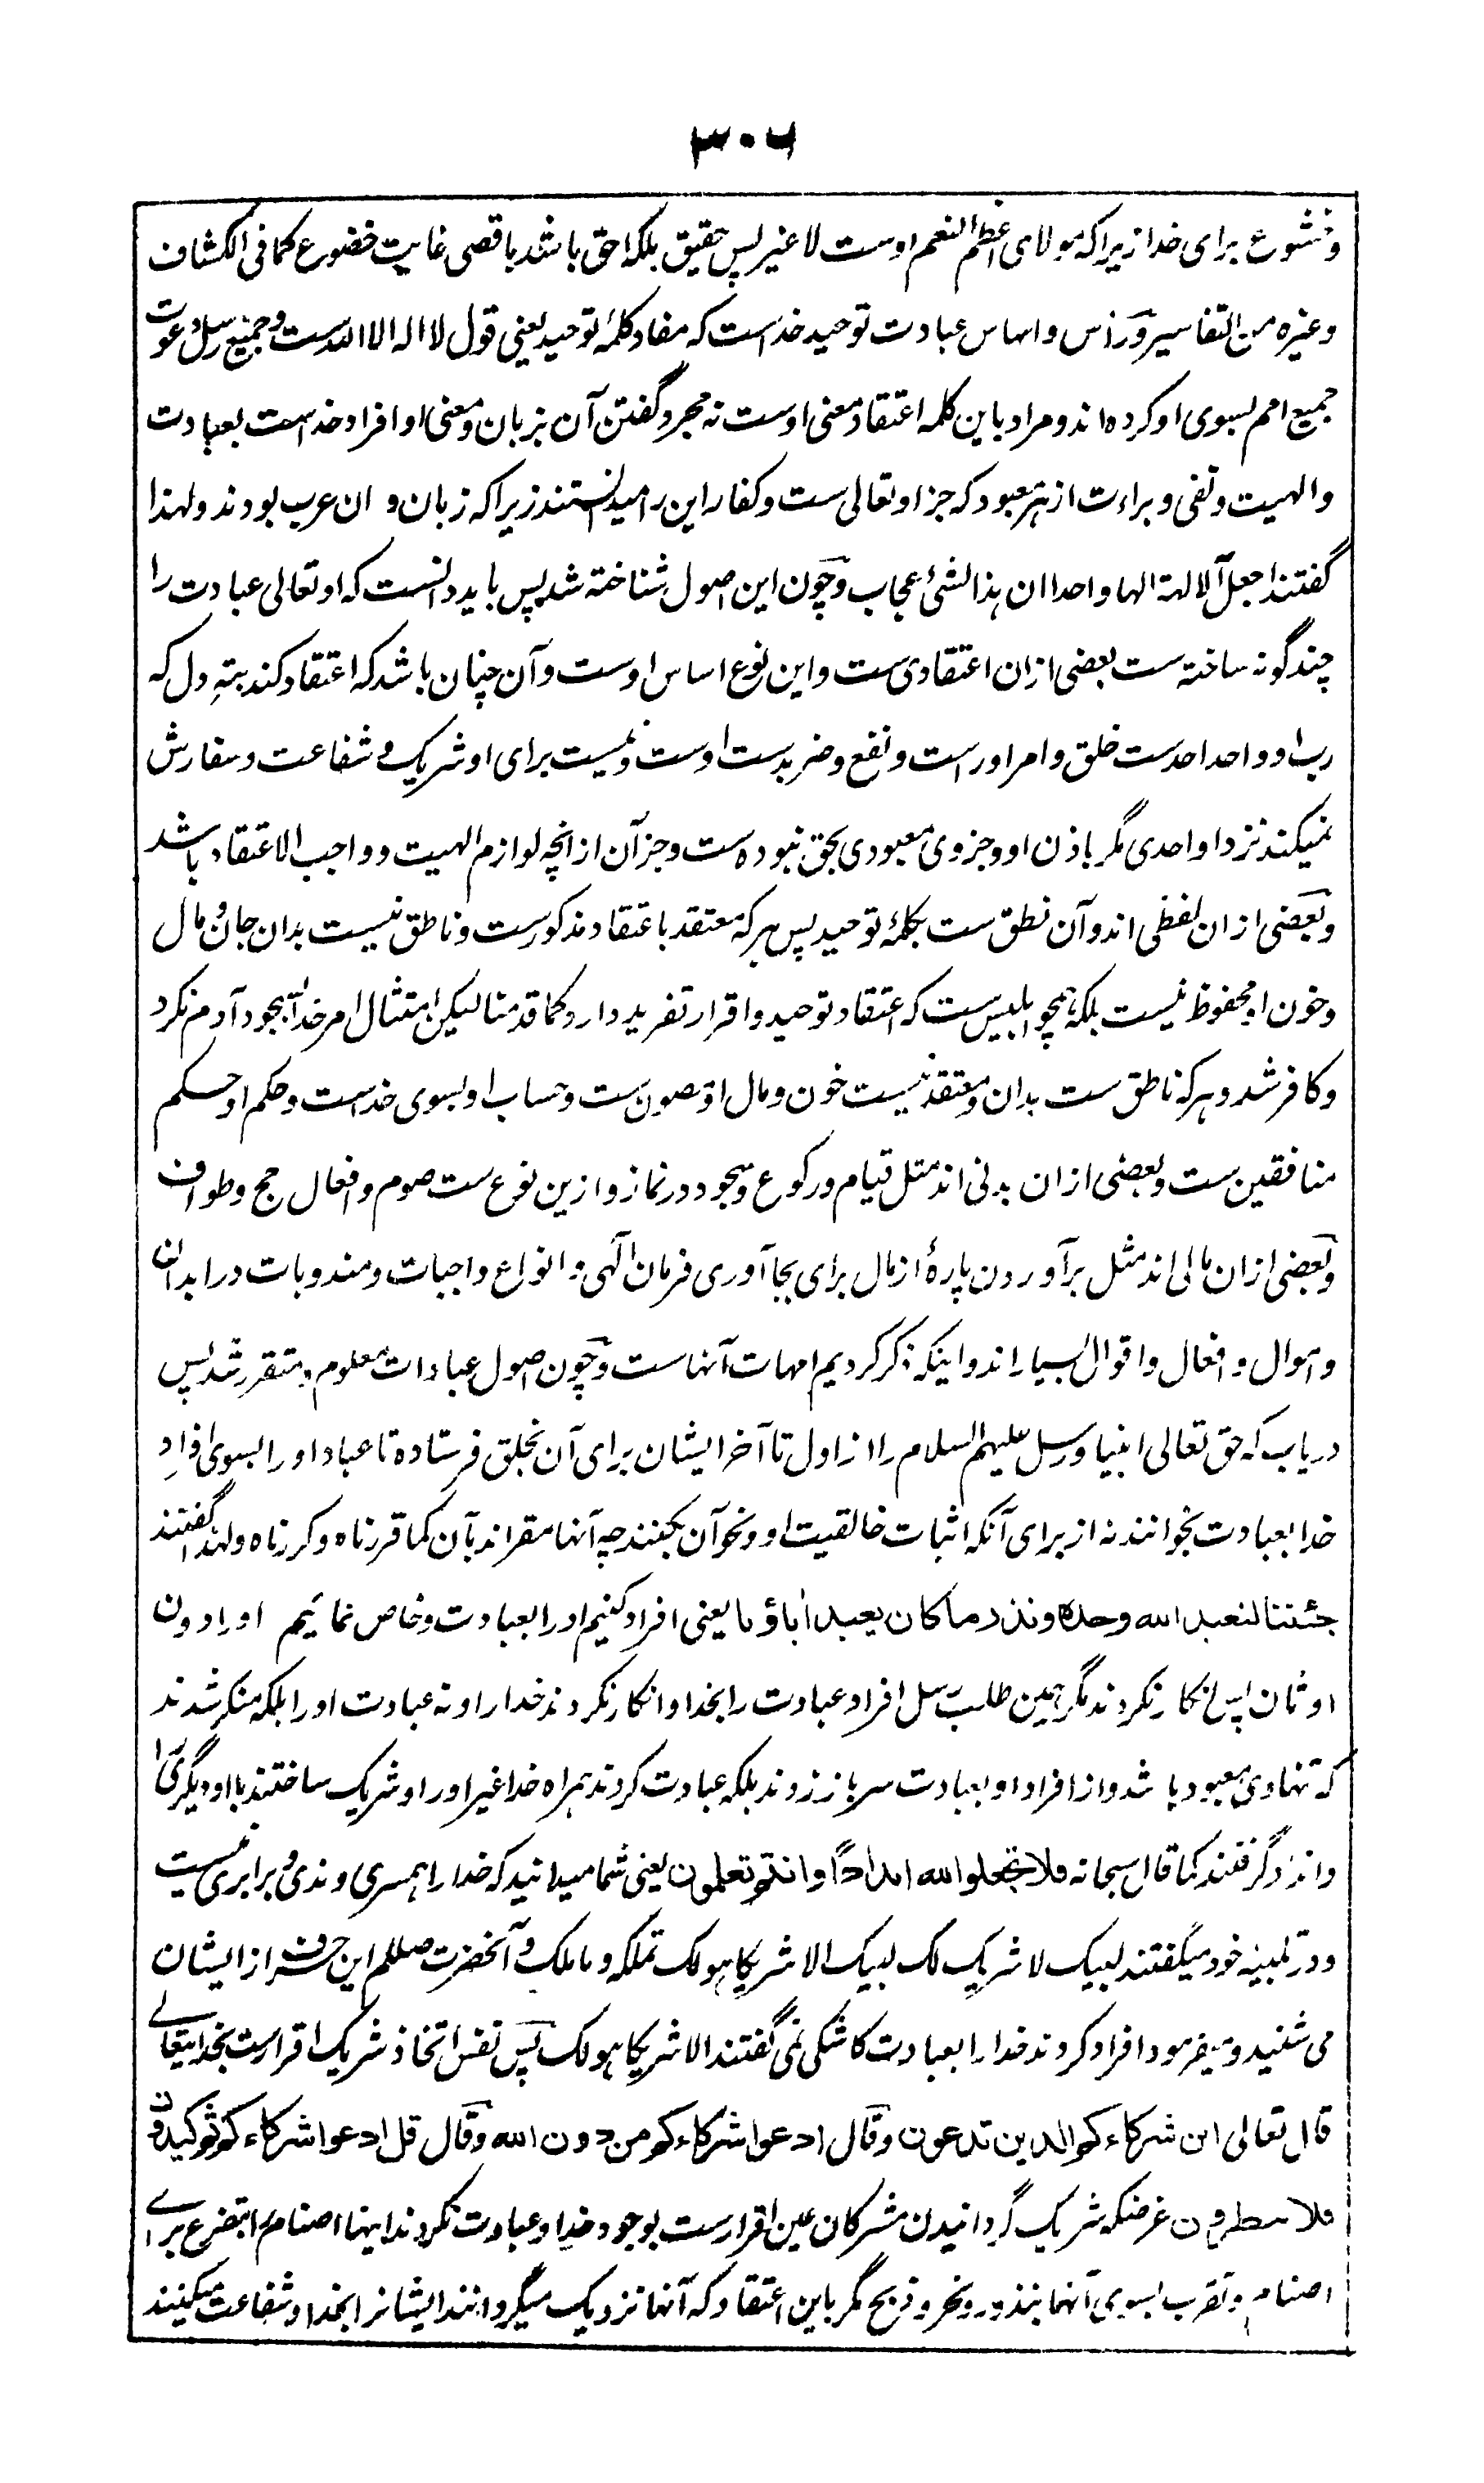 ۳۰۶
وخشوع برای خدا زیراکه مولای اعظم النعم اوست لاغیر پس حقیق بلکه احق باشد باقصی غایت خضوع کما فی الکشاف
وغیره من التفاسیر ورأس واساس عبادت توحید خداست که مفاد کلمۀ توحید یعنی قول لا اله الا الله ست وجمیع رسل دعوت
جمیع امم بسوی او کرده اند ومراد باین کلمه اعتقاد معنی اوست نه مجرد گفتن آن بزبان ومعنی او افراد خداست بعبادت
والهیت ونفی وبراءت از هر معبود که جز او تعالی ست وکفار این را میدانستند زیراکه زبان دان عرب بودند ولهذا
گفتند اجعل الآلهة الها واحدا ان هذا لشئ عجاب وچون این اصول شناخته شد پس باید دانست که او تعالی عبادت را
چند گونه ساخته ست بعضی ازان اعتقادی ست واین نوع اساس اوست وآن چنان باشد که اعتقاد کند بتهِ دل که
رب او واحد احدست خلق وامر اوراست ونفع وضر بدست اوست ونیست برای او شریک وشفاعت وسفارش
نمیکند نزد او احدی مگر باذن او وجز وی معبودی بحق نبوده ست وجز آن از انچه لوازم الهیت وواجب الاعتقاد باشد
وبعضی ازان لفظی اند وآن نطق ست بکلمۀ توحید پس هر که معتقد باعتقاد مذکورست وناطق نیست بدان جان ومال
وخون او محفوظ نیست بلکه همچو ابلیس ست که اعتقاد توحید واقرار تفرید دارد کما قدمنا لیکن امتثال امر خدا بسجود آدم نکرد
وکافر شد وهر که ناطق ست بدان ومعتقد نیست خون ومال او مصون ست وحساب او بسوی خداست وحکم او حکم
منافقین ست وبعضی ازان بدنی اند مثل قیام ورکوع وسجود در نماز وازین نوع ست صوم وافعال حج وطواف
وبعضی ازان مالی اند مثل برآوردن پارۀ از مال برای بجا آوری فرمان الهی وانواع واجبات ومندوبات در ابدان
واموال وافعال واقوال بسیار اند واینکه ذکر کردیم امهات آنهاست وچون اصول عبادات معلوم ومتقرر شد پس
دریاب که حق تعالی انبیا ورسل علیهم السلام را از اول تا آخر ایشان برای آن بخلق فرستاده تا عباد او را بسوی افرادِ
خدا بعبادت بخوانند نه از برای آنکه اثبات خالقیت او ونحو آن بکنند چه آنها مقر اند بآن کما قررناه وکررناه ولهذا گفتند
جئتنا لنعبد الله وحده ونذر ما کان یعبد اباؤنا یعنی افراد کنیم او را بعبادت وخاص نمائیم او را دون
اوثان پس انکار نکردند مگر همین طلب رسل افراد عبادت را بخدا وانکار نکردند خدا را ونه عبادت او را بلکه منکر شدند
که تنها وی معبود باشد واز افراد او بعبادت سر باز زدند بلکه عبادت کردند همراه خدا غیر او را وشریک ساختند با او دیگری را
واندّاد گرفتند کما قال سبحانه فلا تجعلوا لله اندادًا وانتم تعلمون یعنی شما میدانید که خدا را همسری وندی وبرابری نیست
ودر تلبیه خود میگفتند لبیک لا شریک لک لبیک الا شریکا هو لک تملکه وما ملک وآنحضرت صللم این حرف از ایشان
می شنید ومیفرمود افراد کردند خدا را بعبادت کاشکی نمی گفتند الا شریکا هو لک پس نفس اتخاذ شریک اقرارست بخدایتعالے
قال تعالی این شرکاءکم الذین تدعون وقال ادعوا شرکاءکم من دون الله وقال قل ادعوا شرکاءکم ثم کیدون
فلا تنظرون غرضکه شریک گردانیدن مشرکان عین اقرارست بوجود خدا وعبادت نکردند اینها اصنام را بتضرع برائے
اصنام وتقرب بسوی آنها بنذور ونحر وذبح مگر باین اعتقاد که آنها نزدیک میگردانند ایشانرا بخدا وشفاعت میکنند